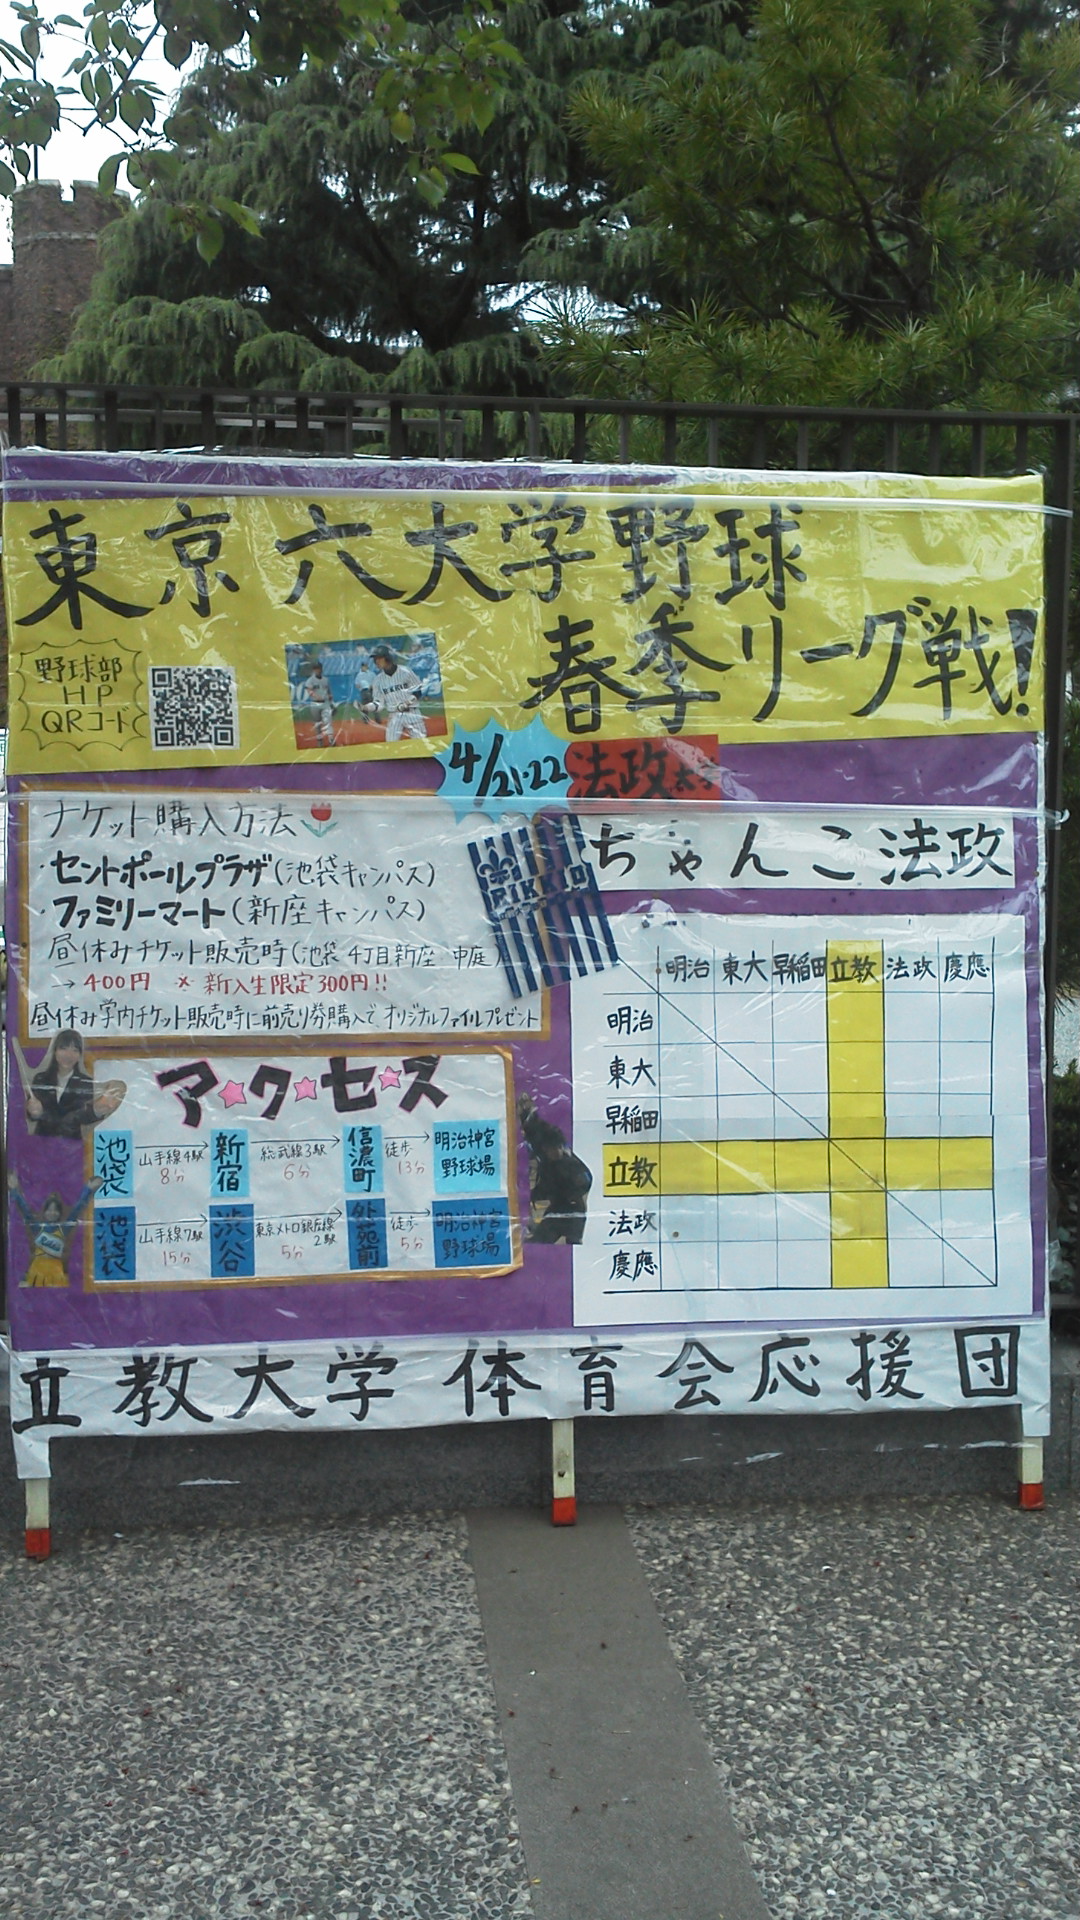 東京六大学野球
春季リーグ戦!
野球部
HP
QRコード
4/21・22 法政大学
チケット購入方法
・セントポールプラザ(池袋キャンパス)
・ファミリーマート(新座キャンパス)
昼休みチケット販売時(池袋 4丁目 新座・中庭)
→400円 ※新入生限定300円!!
昼休み学内チケット販売時に前売り券購入で、オリジナルファイルプレゼント
RIKKIO
ちゃんこ法政
明治 東大 早稲田 立教 法政 慶應
明治
東大
早稲田
立教
法政
慶應
ア☆ク☆セ☆ス
池袋 山手線4駅 8分 新宿 総武線3駅 6分 信濃町 徒歩 13分 明治神宮野球場
池袋 山手線7駅 15分 渋谷 東京メトロ銀座線2駅 5分 外苑前 徒歩 5分 明治神宮野球場
立教大学 体育会応援団